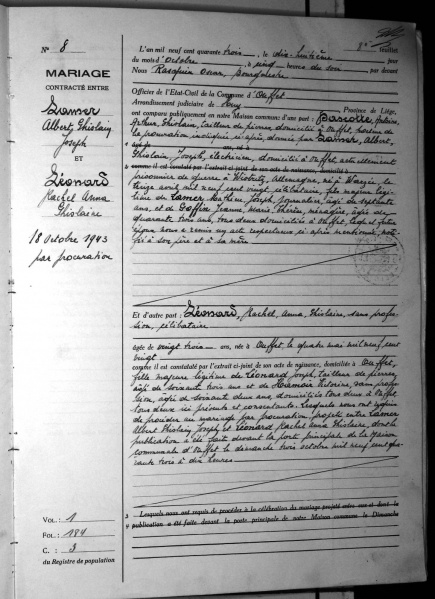 N° 8
MARIAGE
CONTRACTÉ ENTRE
Lamer
Albert Ghislain
Joseph
ET
Léonard
Rachel Anna
Ghislaine
18 Octobre 1943
par procuration
VOL.: 1
FOL.: 184
C.: 3
du Registre de population
8e feuillet
L'an mil neuf cent quarante trois, le dix-huitième jour
du mois d'Octobre, à heures du soir par devant
Nous Oscar, bourgmestre
Officier de l'Etat-Civil de la Commune d'Ouffet
Arrondissement judiciaire de Huy Province de Liége,
ont comparu publiquement en notre Maison commune d'une part :
Ghislain, tailleur de pierres, domicilié à Ouffet, porteur de
la procuration indiquée ci après, donnée par Lamer, Albert,
Ghislain, Joseph, électricien, domicilié à Ouffet, actuellement
comme il est constaté par l'extrait ci-joint de ses actes de naissance, domicilié à
prisonnier de guerre à Allemagne, né à Warzée, le
treize avril mil neuf cent vingt, célibataire, fils majeur légi-
time de Lamer Joseph, journalier, âgé de septante
ans, et de Goffin Jeanne, Marie, ménagère, âgée de
quarante trois ans, tous deux domiciliés à Ouffet,
nous a remis un acte respectueux ci après mentionné, noti-
fié à son père et à sa mère
Et d'autre part : Léonard, Rachel, Anna, Ghislaine, sans profes-
sion, célibataire
âgée de vingt trois ans, née à Ouffet, le quatre mai mil neuf cent
vingt
comme il est constaté par l'extrait ci-joint de son acte de naissance, domiciliée à Ouffet,
fille majeure légitime de Léonard Joseph, tailleur de pierres,
âgé de soixante trois ans et de Hamoir Victorine, sans profes-
sion, âgée de soixante deux ans, domiciliés tous deux à Ouffet
tous deux ici présents et consentants. Lesquels nous ont requis
de procéder au mariage par procuration projeté entre Lamer
Albert Ghislain Joseph et Léonard Rachel Anna Ghislaine, dont la
publication a été faite devant la porte principale de la Maison
communale d'Ouffet le dimanche trois octobre mil neuf cent qua-
rante trois à dix heures
Lesquels nous ont requis de procéder à la célébration du mariage projeté entre eux et dont la
publication a été faite devant la porte principale de notre Maison commune le Dimanche